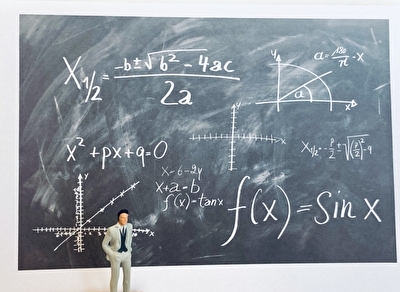 X₁/₂ = -b±√b²-4ac / 2a
a = 180/π · x
y
a
x
y
x
x²+px+q=0
X₁/₂ = -p/2 ± √(p/2)²-q
x=6-2y
x+a=b
f(x)=tanx
f(x)=Sin x
y
x